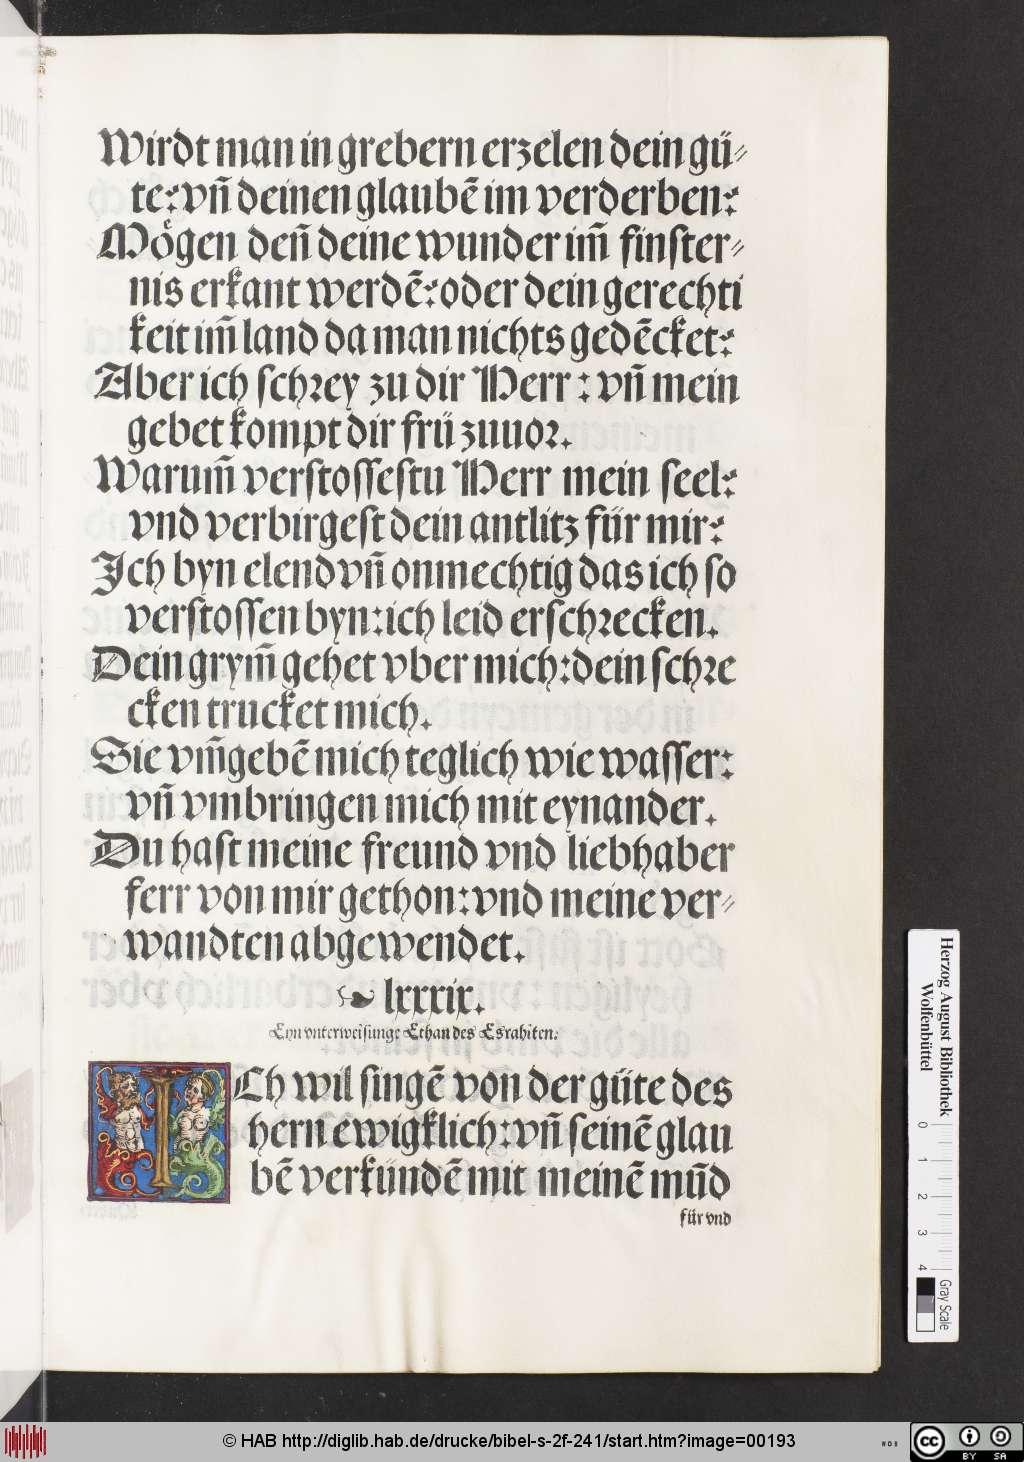 Wirdt man in grebern erzelen dein gü⸗
te: vn̄ deinen glaubē im verderben:
Mögen den̄ deine wunder im̄ finster⸗
nis erkant werdē: oder dein gerechti
keit im̄ land da man nichts gedēcket:
Aber ich schꝛey zu dir Herr: vn̄ mein
gebet kompt dir frü zuuoꝛ.
Warum̄ verstossestu Herr mein seel:
vnd verbirgest dein antlitz für mir:
Ich byn elend vn̄ onmechtig das ich so
verstossen byn: ich leid erschꝛecken.
Dein grym̄ gehet vber mich: dein schꝛe
cken trucket mich.
Sie vm̄gebē mich teglich wie wasser:
vn̄ vmbringen mich mit eynander.
Du hast meine freund vnd liebhaber
ferr von mir gethon: vnd meine ver⸗
wandten abgewendet.
lxxxix.
Eyn vnterweisunge Ethan des Esrahiten:
ICh wil singē von der güte des
hern ewigklich: vn̄ seinē glau
bē verkündē mit meinē mūd
für vnd
Herzog August Bibliothek
Wolfenbüttel
0 1 2 3 4
Gray Scale
© HAB http://diglib.hab.de/drucke/bibel-s-2f-241/start.htm?image=00193
WDB
cc BY SA